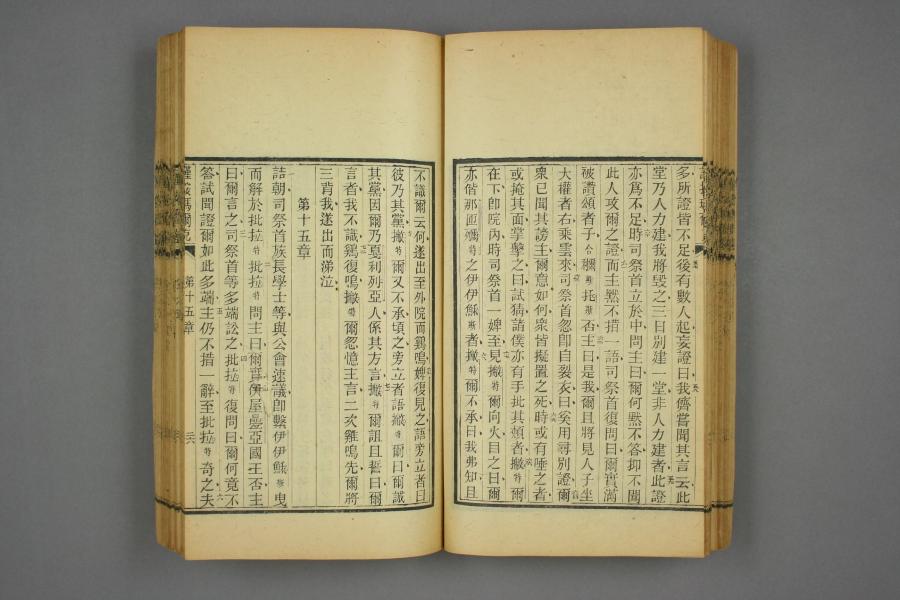 多所證皆不足後有數人起妄證曰我儕嘗聞其言云此
堂乃人力建我將毀之三日別建一堂非人力建者此證
亦爲不足時司祭首立於中問主曰爾何黙不答抑不聞
此人攻爾之證而主黙不措一語司祭首復問曰爾實爲
被讚頌者子合利斯托斯否主曰是我爾且將見人子坐
大權者右乘雲來司祭首忽卽自裂衣曰奚用尋別證爾
衆已聞其謗主爾意如何衆皆擬置之死時或有唾之者
或掩其面掌擊之曰試猜諸僕亦有手批其頰者撇特爾
在下卽院內時司祭首一婢至見撇特爾向火目之曰爾
亦偕那匝嗎特之伊伊穌斯者撇特爾不承曰我弗知且
不識爾云何遂出至外院而鷄鳴婢復見之語旁立者曰
彼乃其黨撇特爾又不承頃之旁立者語撇特爾曰爾誠
其黨因爾乃戛利列亞人係其方言撇特爾詛且誓曰爾
言者我不識鷄復鳴撇特爾忽憶主言二次雞鳴先爾將
三背我遂出而涕泣
第十五章
詰朝司祭首族長學士等與公會速議卽繫伊伊穌斯曳
而解於批拉特批拉特問主曰爾實伊屋疊亞國王否主
曰爾言之司祭首等多端訟之批拉特復問曰爾何竟不
答試聞證爾如此多端主仍不措一辭至批拉特奇之夫
第十五章